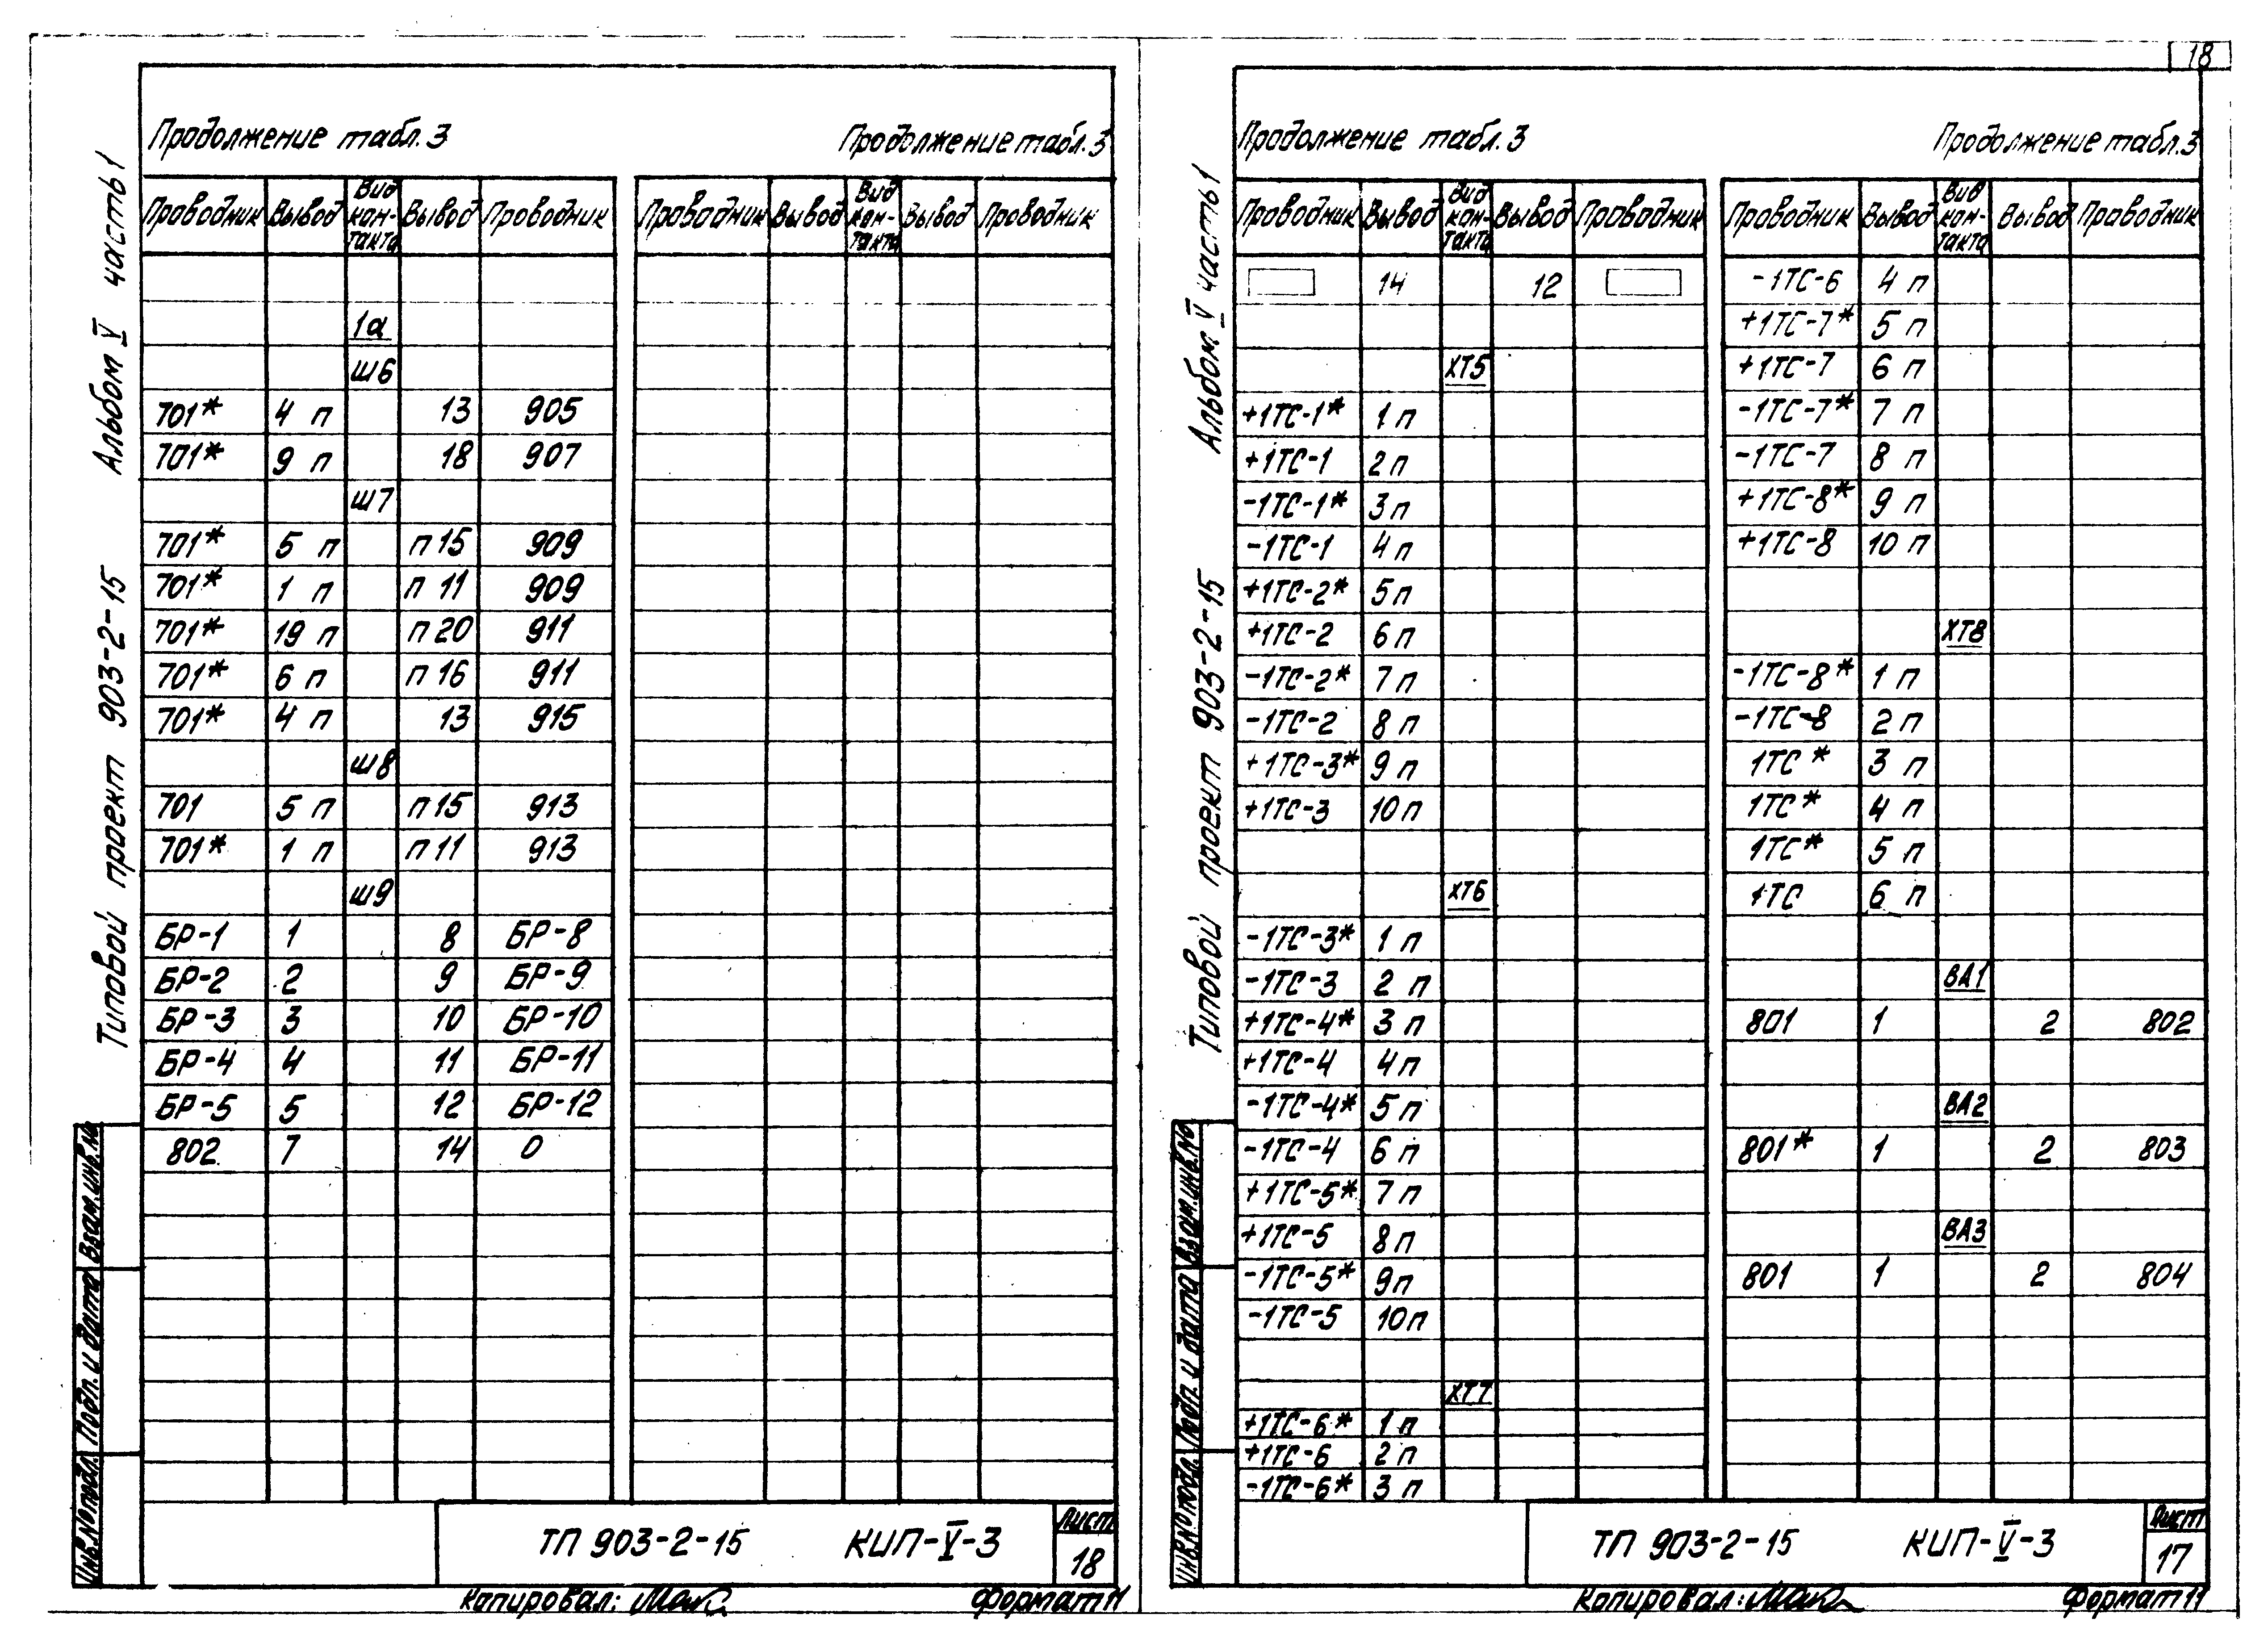 18
Продолжение табл.3
Продолжение табл.3
Проводник Вывод Вид кон-такта Вывод Проводник
Проводник Вывод Вид кон-такта Вывод Проводник
1а
Ш6
701* 4 п 13 905
701* 9 п 18 907
Ш7
701* 5 п п 15 909
701* 1 п п 11 909
701* 19 п п 20 911
701* 6 п п 16 911
701* 4 п 13 915
Ш8
701 5 п п 15 913
701* 1 п п 11 913
Ш9
БР-1 1 8 БР-8
БР-2 2 9 БР-9
БР-3 3 10 БР-10
БР-4 4 11 БР-11
БР-5 5 12 БР-12
802 7 14 0
Типовой проект 903-2-15 Альбом V часть 1
Инв.№подл. Подп. и дата Взам.инв.№
ТП 903-2-15 КИП-V-3
Лист
18
Копировал:
Формат 11
Продолжение табл.3
Продолжение табл.3
Проводник Вывод Вид кон-такта Вывод Проводник
14 12
ХТ5
+1ТС-1* 1 п
+1ТС-1 2 п
-1ТС-1* 3 п
-1ТС-1 4 п
+1ТС-2* 5 п
+1ТС-2 6 п
-1ТС-2* 7 п
-1ТС-2 8 п
+1ТС-3* 9 п
+1ТС-3 10 п
ХТ6
-1ТС-3* 1 п
-1ТС-3 2 п
+1ТС-4* 3 п
+1ТС-4 4 п
-1ТС-4* 5 п
-1ТС-4 6 п
+1ТС-5* 7 п
+1ТС-5 8 п
-1ТС-5* 9 п
-1ТС-5 10 п
ХТ7
+1ТС-6* 1 п
+1ТС-6 2 п
-1ТС-6* 3 п
Проводник Вывод Вид кон-такта Вывод Проводник
-1ТС-6 4 п
+1ТС-7* 5 п
+1ТС-7 6 п
-1ТС-7* 7 п
-1ТС-7 8 п
+1ТС-8* 9 п
+1ТС-8 10 п
ХТ8
-1ТС-8* 1 п
-1ТС-8 2 п
1ТС* 3 п
1ТС* 4 п
1ТС* 5 п
1ТС 6 п
ВА1
801 1 2 802
ВА2
801* 1 2 803
ВА3
801 1 2 804
Типовой проект 903-2-15 Альбом V часть 1
Инв.№подл. Подп. и дата Взам.инв.№
ТП 903-2-15 КИП-V-3
Лист
17
Копировал:
Формат 11